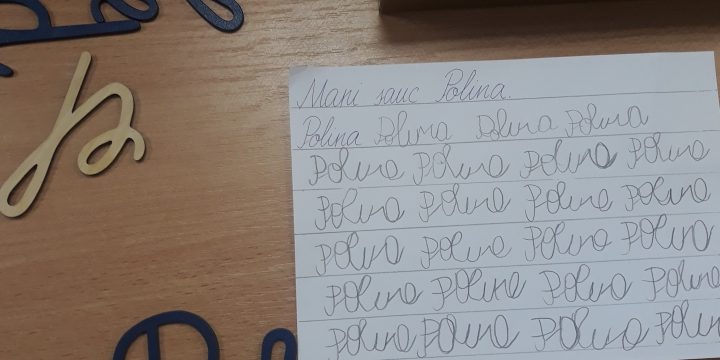 Mani sauc Polina.
Polina Polina Polina Polina
Polina Polina Polina Polina
Polina Polina Polina Polina
Polina Polina Polina Polina
Polina Polina Polina Polina
Polina Polina Polina Polina